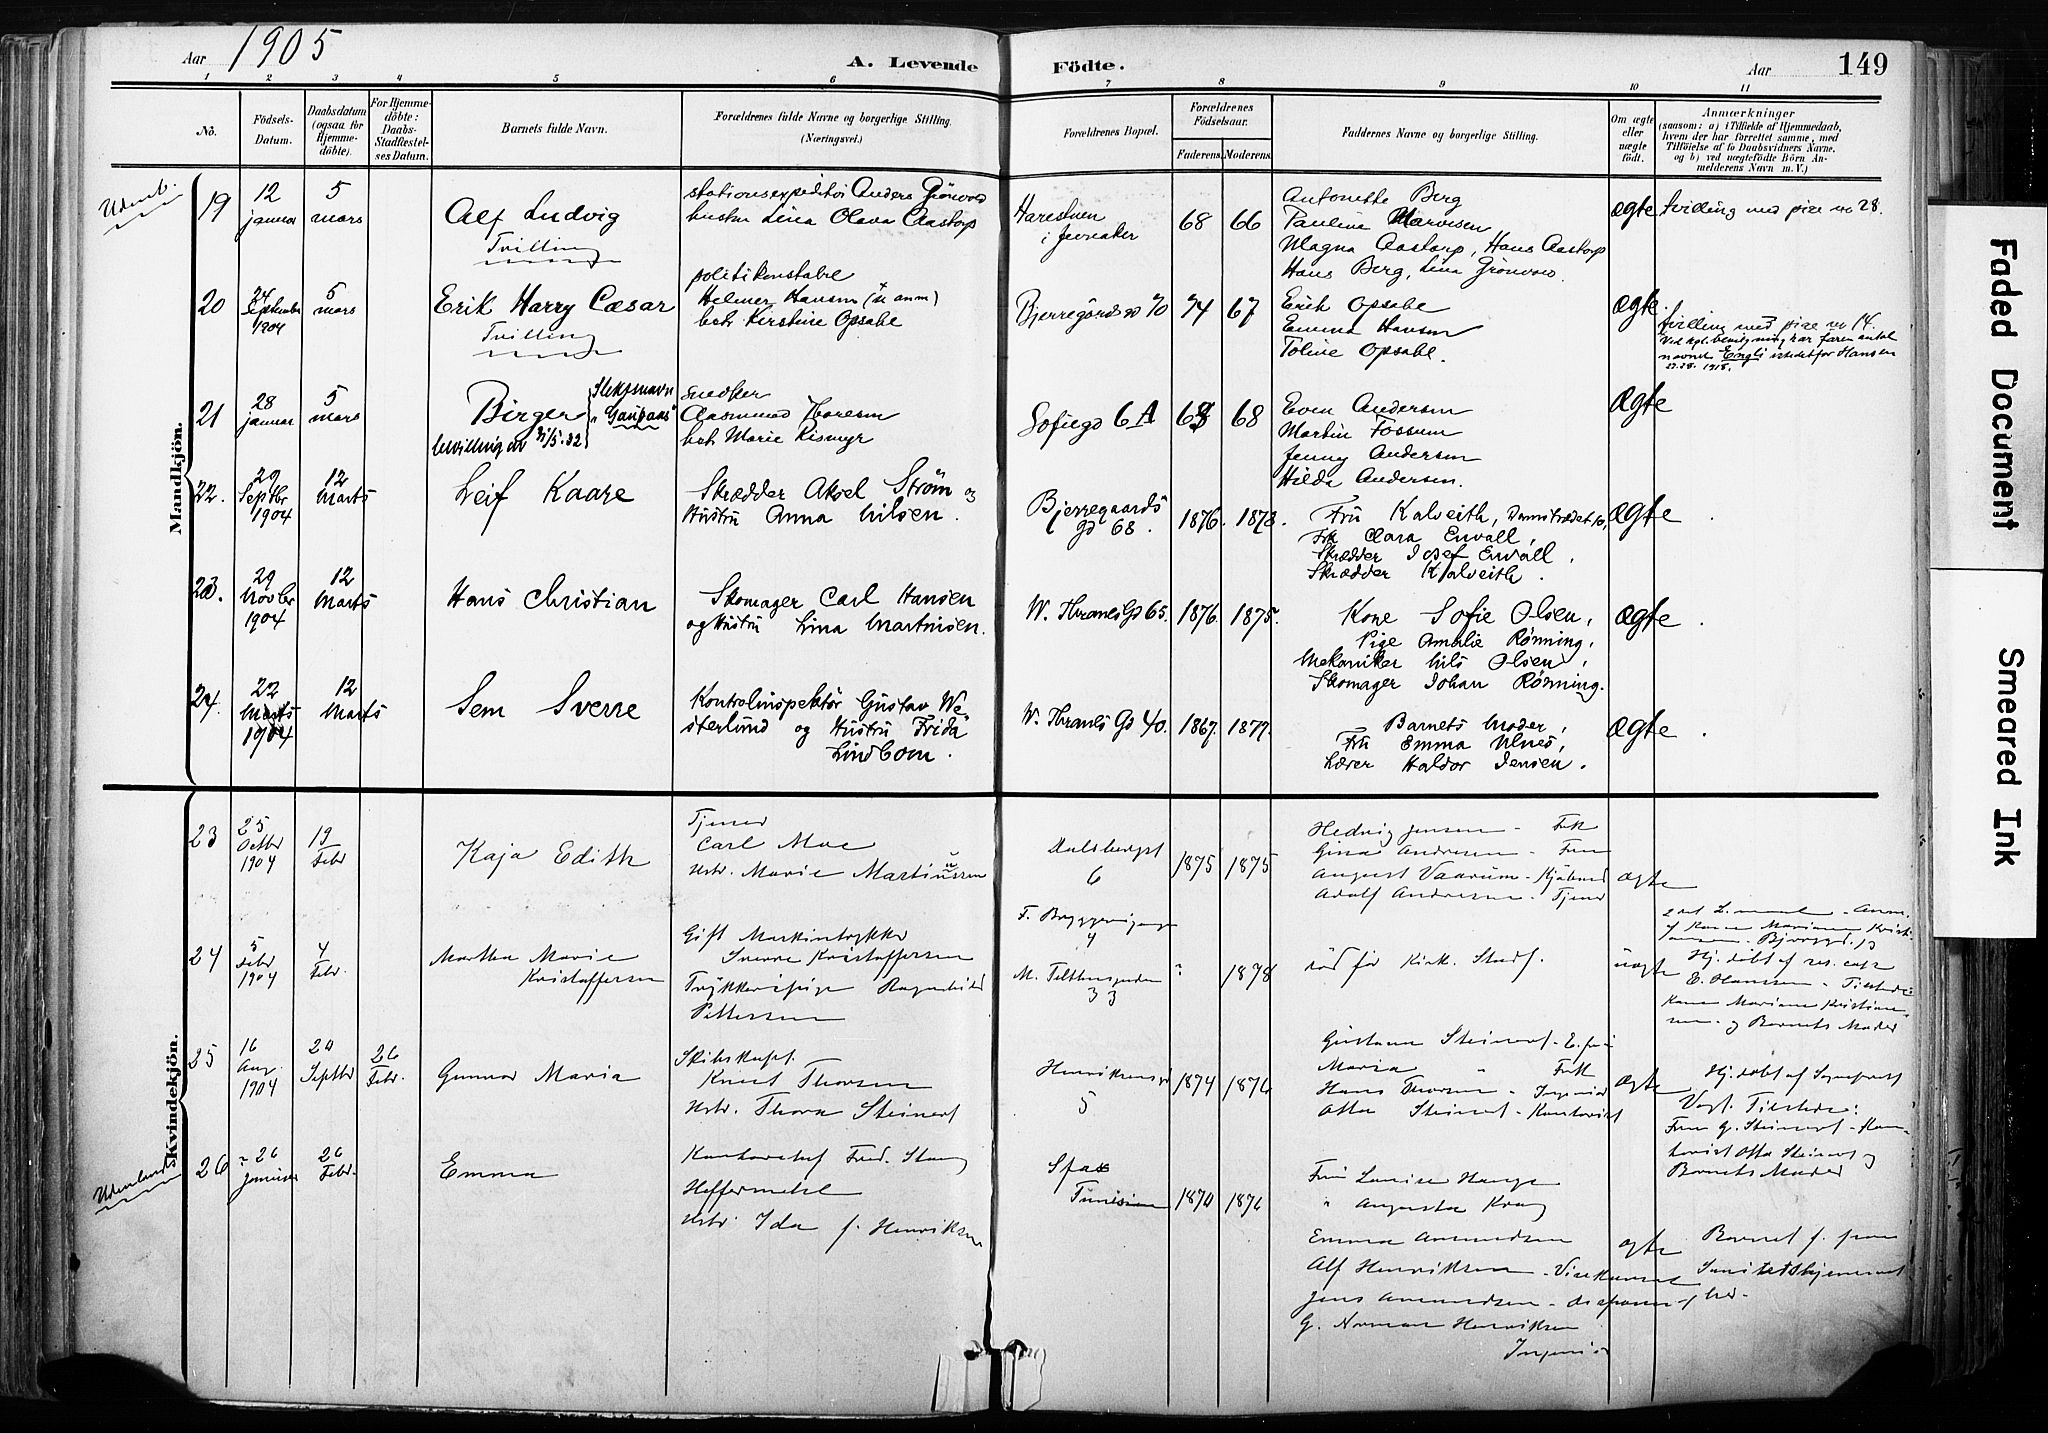 Aar 1905
A. Levende Födte.
Aar
149
1 2 3 4 5 6 7 8 9 10 11
No.
Födsels-Datum.
Daabsdatum (ogsaa for Hjemmedöbte).
For Hjemmedöbte: Daabs-Stadfæstelses Datum.
Barnets fulde Navn.
Forældrenes fulde Navne og borgerlige Stilling. (Næringsvei.)
Forældrenes Bopæl.
Forældrenes Födselsaar.
Faderens. Moderens.
Faddernes Navne og borgerlige Stilling.
Om ægte eller uægte födt.
Anmærkninger
(saasom: a) i Tilfælde af Hjemmedaab, hvem der har forrettet samme, med Tilföielse af to Daabsvidners Navne, og b) ved uægtefödte Börn Anmelderens Navn m. V.)
Mandkjön.
Udenb.
19
12 januar
5 mars
Alf Ludvig
Tvilling
stationsexpeditör Anders Grönvold
hustru Lina Olava Aastorp
Harestuen
i Jevnaker
68 66
Antonette Berg
Pauline
Magna Aastorp, Hans Aastorp
Hans Berg, Lina Grönvold
ægte
tvilling med pike no 28.
20
24 September 1904
5 mars
Erik Harry Cæsar
Tvilling
politikonstabel
Helmer Hansen (se anm)
hustr Kirstine Opsahl
Bjerregårdsgd 70
74 67
Erik Opsahl
Emma Hansen
Toline Opsahl.
ægte
tvilling med pike no 14.
Ved kgl. bevilgning har faren antat
navnet Engli istedetfor Hansen
1918.
21
28 januar
5 mars
Birger
Slektsnavn
"Gaupaas"
bevilling av 21/5.32
snedker
Aasmund Thoresen
hustr Marie Rismyr
Sofiegd 6A
68 68
Even Andersen
Martin Fossum
Jenny Andersen
Hilda Andersen.
Ægte
22.
29 Septbr 1904
12 Marts
Leif Kaare
Skrædder Aksel Ström og
Hustru Anna Nilsen.
Bjerregaards
gd 68.
1876. 1878.
Frü Kalveith, Damstrædet 10,
Frk Clara Envall,
Skrædder Josef Envall,
Skrædder Kalveith.
ægte
23.
29 Novbr 1904
12 Marts
Hans Christian
Skomager Carl Hansen
og Hustru Lina Martinsen.
W. Thranes Gd 65.
1876. 1875.
Kone Sofie Olsen,
Pige Amalie Rønning,
Mekaniker Nils Olsen,
Skomager Johan Rønning.
ægte
24.
22 Marts 1904
12 Marts
Sem Sverre
Kontrolinspektör Gustav We-
sterlund og Hustru Frida
Lindbom.
W. Thranes Gd 40.
1867. 1877.
Barnets Moder,
Frü Emma Ulnes,
Lærer Haldor Jensen.
ægte
Kvindekjön.
23
25 Octbr 1904
19 Febr
Kaja Edith
Tjener
Carl Moe
Hstr. Marie Martinussen
Dalsbergst
6
1875 1875
Hedvig Jensen - Frk
Gina Andresen - Frue
August Vaarum - Kjøbmd
Adolf Andresen - Tjener
ægte
24
5 Febr 1904
4 Febr.
Martha Marie
Kristoffersen
Gift Maskintrykker
Sverre Kristoffersen
Trykkeripige Ragnhild
Pettersen
F. Bryggerigangen
4
M. Telthusgaden
33
1878
død før kirk. Stadf.
uægte
Kone Mariane Kristi-
ansen. Bjerregd. 13
Hj. døbt af res. cap.
E. Hanssen - Tilstede:
Kone Mariane Kristian-
sen og Barnets Moder
25
16 Aug. 1904
20 Septbr
26 Febr.
Gunvor Maria
Skibskapt.
Knut Thorsen
Hstr. Thora Steinert
Henriksensgd
5
1874 1876
Gustava Steinert - E.frü
Maria " Frk
Hans Thorsen - Ingeniør
Otto Steinert - Kontorist
ægte
Hj. døbt af Sognepræst
Vogt. Tilstede:
Fru G. Steinert - Kon-
torist Otto Steinert og
Barnets Moder
Udenlands
26
26 januar
26 Febr.
Emma
Kontorchef Fred. Stang
Heffermehl
Hstr. Ida f. Henriksen
Sfax
Tunisien
1870 1876
Frü Louise Hauge
" Augusta Krag
Emma Amundsen
Alf Henriksen - Visekonsul
Jens Amundsen - disponent
G. Norman Henriksen
Ingeniør
ægte
Barnet f. paa
Sanitetshjemmet
her.
Faded Document
Smeared Ink